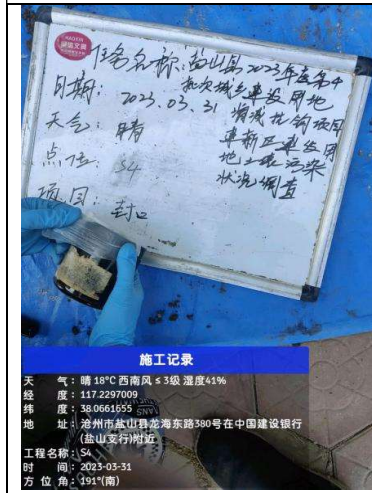 任务名称:盐山县2023年度第十
批次城乡建设用地
增减挂钩项目
建新区建设用
地土壤污染
状况调查
日期: 2023.03.31
天气: 晴
点位: S4
项目: 封口
施工记录
天 气:晴 18°C 西南风 ≤ 3级 湿度41%
经 度:117.2297009
纬 度:38.0661655
地 址:沧州市盐山县龙海东路380号在中国建设银行
(盐山支行)附近
工程名称:S4
时 间:2023-03-31
方 位 角:191°(南)